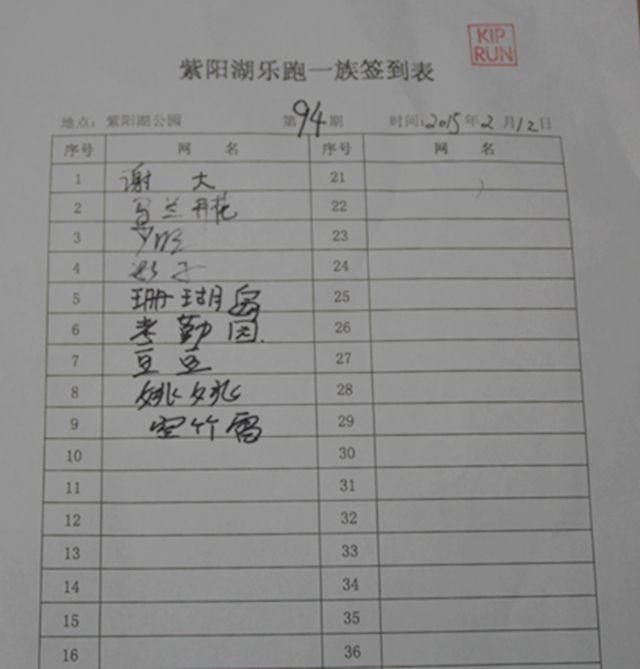 KIP
RUN
紫阳湖乐跑一族签到表
地点：紫阳湖公园 第94期 时间：2015年2月12日
序号 网 名 序号 网 名
1 谢 大 21
2 马兰开花 22
3 23
4 影子 24
5 珊瑚岛 25
6 考勤员 26
7 豆豆 27
8 姚姚 28
9 空竹雷 29
10 30
11 31
12 32
13 33
14 34
15 35
16 36